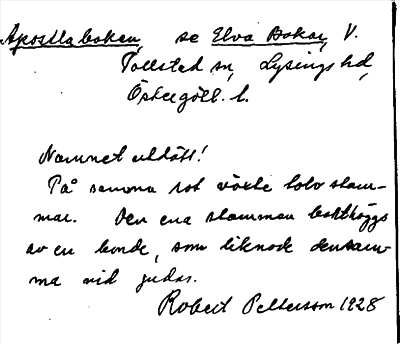 Apostlaboken, se Elva Bokar, V.
Tollstad sn, Lysings hd,
Östergötl. l.
Namnet utdött!
På samma rot växte tolv stam-
mar. Den ena stammen borthöggs
av en bonde, som liknade densam-
ma vid judas.
Robert Pettersson 1928